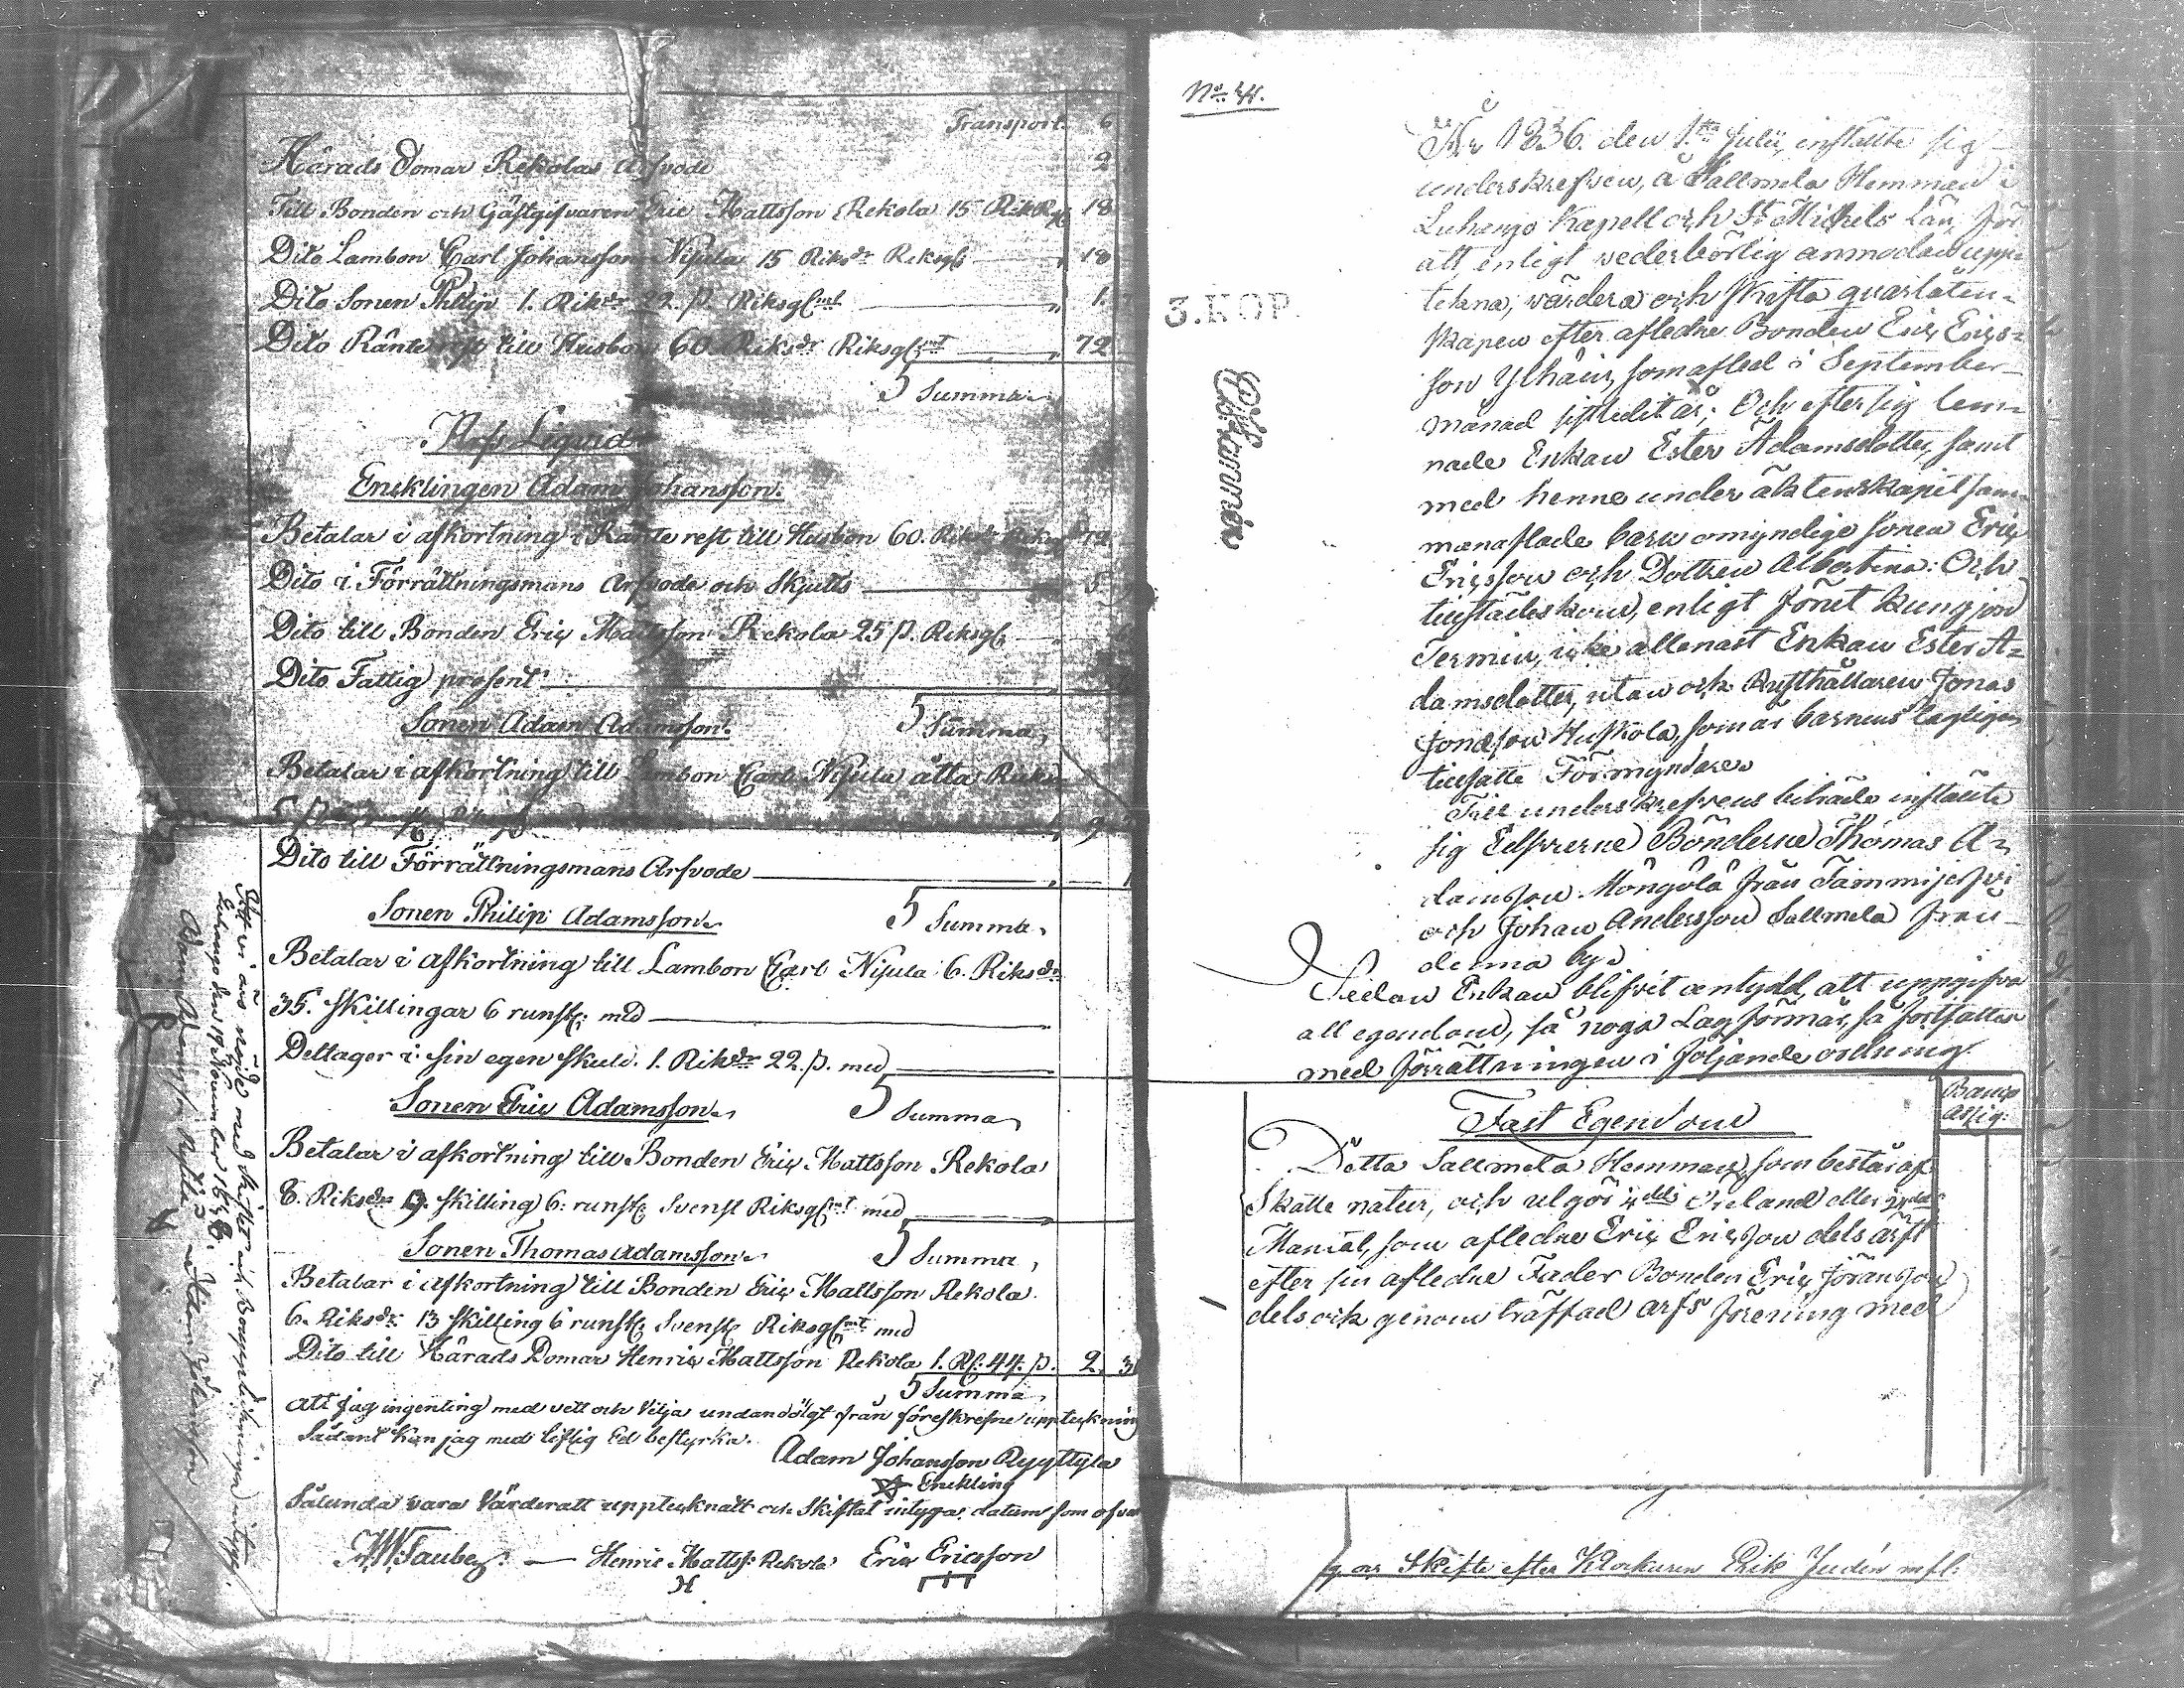 Transport. 6
Härads Domar Rekolas Arfvode 2
Till Bonden och Gästgifvaren Eric Mattsson Rekola 15 Rik Rg 18
Dito Lambon Carl Johansson Nisula 15 Riksdr Riksgs 18
Dito Sonen Philip 1. Riksdr 22. s. Riksglmt 1.
Dito Ränte rest till Husbon 60 Riksdr Riksglmt 72
Summa
Arfs Liquid
Encklingen Adam Johansson.
Betalar i afkortning i Ränte rest till Husbon 60. Riksdr 72
Dito i Förrättningsmans Arfvode och Skjutts 5
Dito till Bonden Eric Mattsson Rekola 25 s. Riksgs
Dito Fattig prosent
Sonen Adam Adamsson. Summa
Betalar i afkortning till Lambon Carl Nisula åtta Riks
9
Dito till Förrättningsmans Arfvode
Sonen Philip Adamsson Summa
Betalar i afkortning till Lambon Carl Nisula 6. Riksdr
35. Skillingar 6 runst: med
Deltager i sin egen skuld. 1. Riksdr 22. s. med
Sonen Eric Adamsson Summa
Betalar i afkortning till Bonden Eric Mattsson Rekola
6. Riksdr 13. Skilling 6: runst: Svenst Riksglmt med
Sonen Thomas Adamsson Summa
Betalar i afkortning till Bonden Eric Mattsson Rekola
6. Riksdr 13 Skilling 6 runst: Svenst Riksglmt med
Dito till Härads Domar Henric Mattsson Rekola 1. Rs: 44. s. 2. 3
Summa
Att jag ingenting med vett och Vilja undandölgt från föreskrefne uppteckning
Sådant kan jag med liflig Ed bestyrka.
Adam Johansson Ryyttylä
Enckling
Sålunda vara Värderatt upptecknatt och Skiftat intyga datum som ofvan
Tauber. Henric Matts: Rekola Eric Ericsson
Att vi äro nöjde med skiftet och intyga.
Luhango den 19 November
Adam Adamsson Adam Johansson
No 4.
3. KOP.
År 1836. den 1sta Julii, instälte sig
underskrefven, å Sallmela Hemman i
Luhango Kapell och St Michels Län, för
att, enligt vederbörlig anmodan upp-
tekna, värdera och skifta qvarlåten-
skapen efter aflidne Bonden Eric Erics-
son Ylhäis, som afled i September
månad sistledit år; Och efter sig lem-
nade Enkan Ester Adamsdotter, samt
med henne under äktenskapet sam-
manaflade barn omyndige sonen Eric
Ericsson och Dottren Albertina: Och
tillstädes kom, enligt förut kungjord
Termin, icke allenast Enkan Ester A-
damsdotter, utan och Rusthållaren Jonas
Jonasson Huskola, som är barnens lagligen
tillsatte Förmyndare
Till underskrefvens biträde instälte
sig Edsvurne Bönderne Thomas A-
damsson Möngölä från Tammijerfvi
och Johan Andersson Sallmela från
denna by.
Sedan Enkan blifvit antydd, att uppgifva
all egendom, så noga Lag förmår, så fortsattes
med förrättningen i följande ordning.
Banco assig:
Fast Egendom
Detta Sallmela Hemman, som består af
Skatte natur, och utgör Öreland eller
Mantal, som aflidne Eric Ericsson dels ärft
efter sin aflidne Fader Bonden Eric Göransson
dels ock genom träffad arfs förening med
Skifte efter Klockaren Erik Judén mfl.